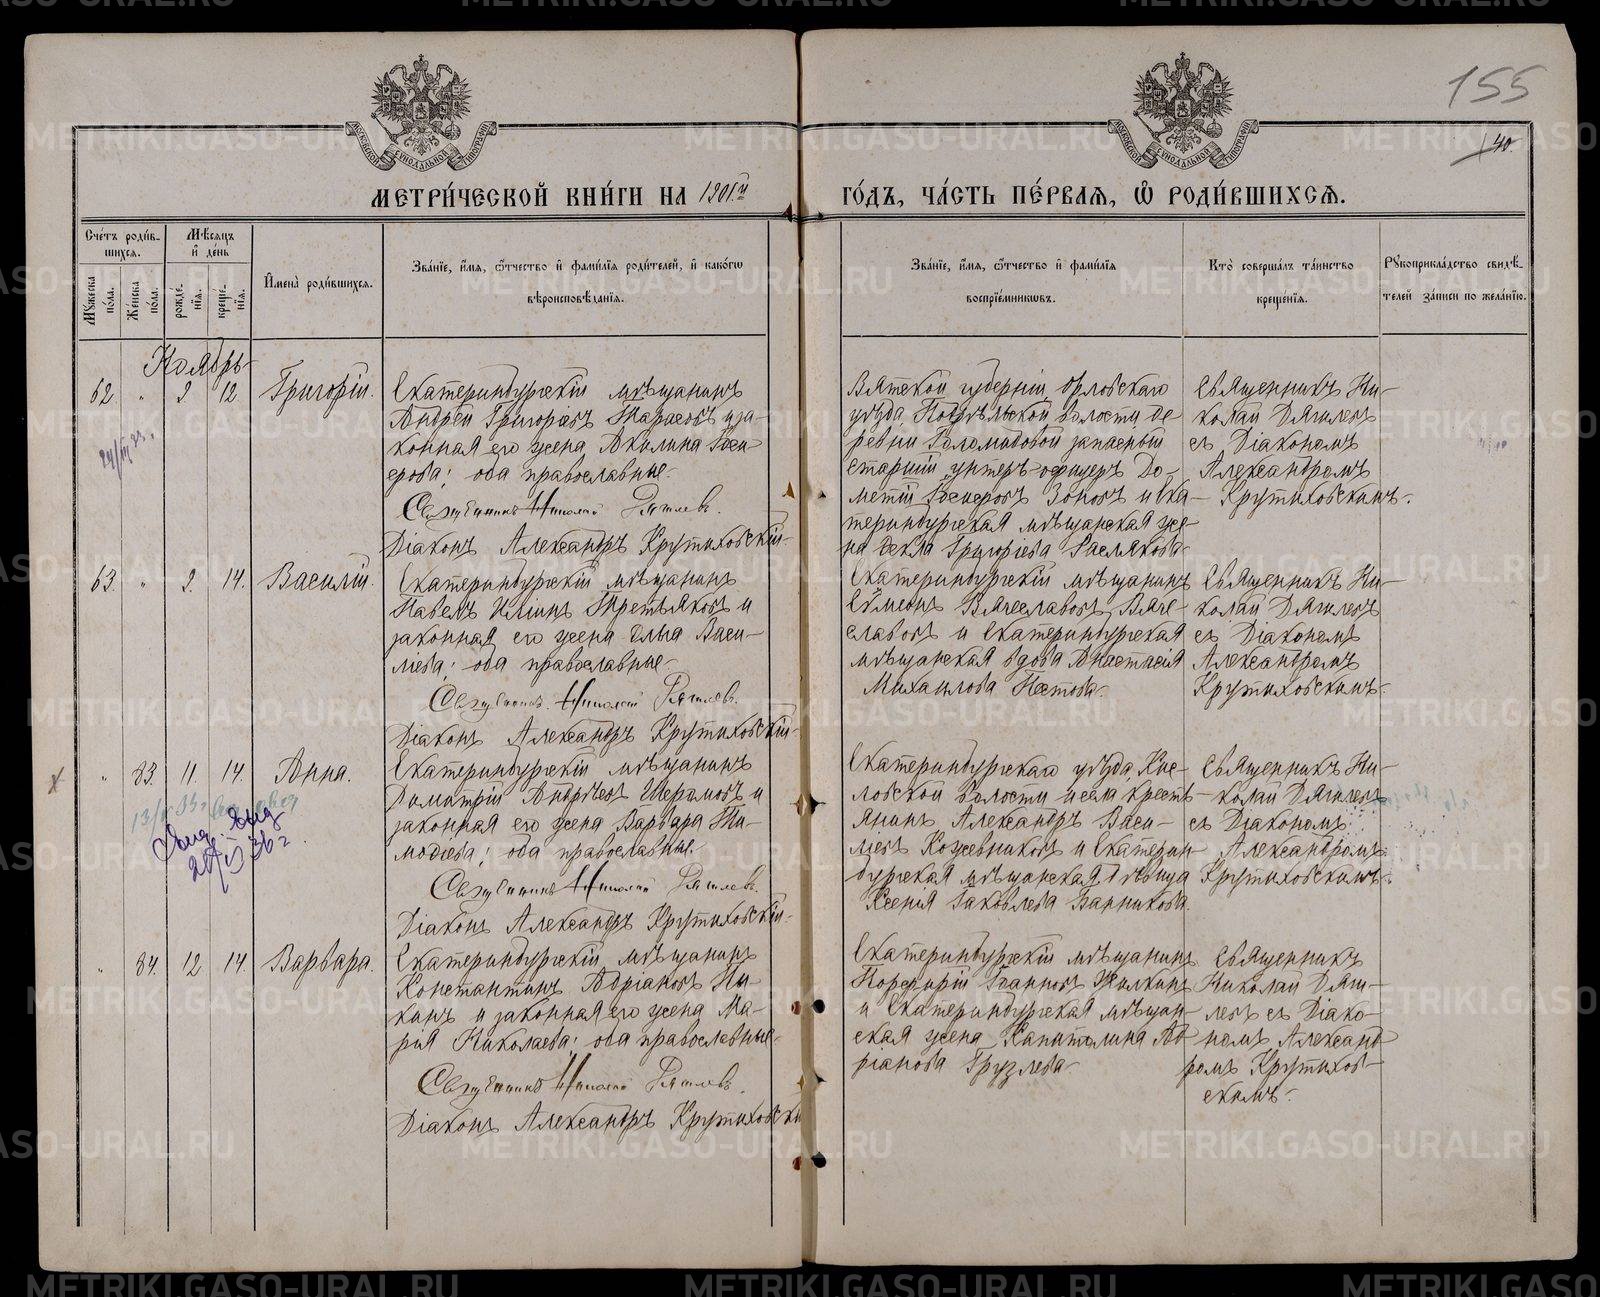 155
40.
МЕТРИ́ЧЕСКОЙ КНИ́ГИ НА 1901й
ГО́ДЪ, ЧА́СТЬ ПЕ́РВАЯ, Ѡ РОДИ́ВШИХСѦ.
Сче́тъ роди́в-
шихся.
Мѣ́сяцъ
и҆ де́нь
Му́жеска
по́ла.
Же́нска
по́ла.
рожде́-
нїя.
креще́-
нїя.
И҆мена̀ роди́вшихся.
Зва́нїе, и҆́мя, ѻ҆́тчество и҆ фами́лїя роди́телей, и҆ како́гѡ
вѣроисповѣ́данїя.
Зва́нїе, и҆́мя, ѻ҆́тчество и҆ фами́лїя
воспрїе́мникѡвъ.
Кто̀ соверша́лъ та́инство
креще́нїя.
Рꙋкоприкла́дство свидѣ́-
телей за́писи по жела́нїю.
Ноябрь
62. " 9 12. Григорій.
Екатеринбургскій мѣщанинъ
Андрей Григорьевъ Тарасовъ и за-
конная его жена Акилина
; оба православные.
Священникъ Николай Дягилевъ.
Діаконъ Александръ Крутиховскій.
Вятской губерніи, Орловскаго
уѣзда, волости де-
ревни запасный
старшій унтеръ-офицеръ До-
метій Зоновъ и Ека-
теринбургская мѣщанская же-
на Ѳекла Григорьева Раслякова.
Священникъ Ни-
колай Дягилевъ
съ Діакономъ
Александромъ
Крутиховскимъ.
63. " 9. 14. Василій.
Екатеринбургскій мѣщанинъ
Павелъ Ильинъ Третьяковъ и
законная его жена Ольга Васи-
льева; оба православные.
Священникъ Николай Дягилевъ.
Діаконъ Александръ Крутиховскій.
Екатеринбургскій мѣщанинъ
Сѷмеонъ Вячеславовъ Вяче-
славовъ и Екатеринбургская
мѣщанская вдова Анастасія
Михаилова
Священникъ Ни-
колай Дягилевъ
съ Діакономъ
Александромъ
Крутиховскимъ.
" 83. 11. 14. Анна.
Екатеринбургскій мѣщанинъ
Димитрій Андреевъ и
законная его жена Варвара Ти-
моѳеева; оба православные.
Священникъ Николай Дягилевъ.
Діаконъ Александръ Крутиховскій.
Екатеринбургскаго уѣзда,
волости и села кресть-
янинъ Александръ Васи-
льевъ Кожевниковъ и Екатерин-
бургская мѣщанская дѣвица
Ксенія Іаковлева Банникова.
Священникъ Ни-
колай Дягилевъ
съ Діакономъ
Александромъ
Крутиховскимъ.
" 84. 12 14. Варвара.
Екатеринбургскій мѣщанинъ
Константинъ Адріановъ
и законная его жена Ма-
рія Николаева; оба православные.
Священникъ Николай Дягилевъ.
Діаконъ Александръ Крутиховскій
Екатеринбургскій мѣщанинъ
Порфирій Іоанновъ
и Екатеринбургская мѣщан-
ская жена Капитолина Ад-
ріанова Грузлева.
Священникъ
Николай Дяги-
левъ съ Діако-
номъ Александ-
ромъ Крутихов-
скимъ.
METRIKI.GASO-URAL.RU